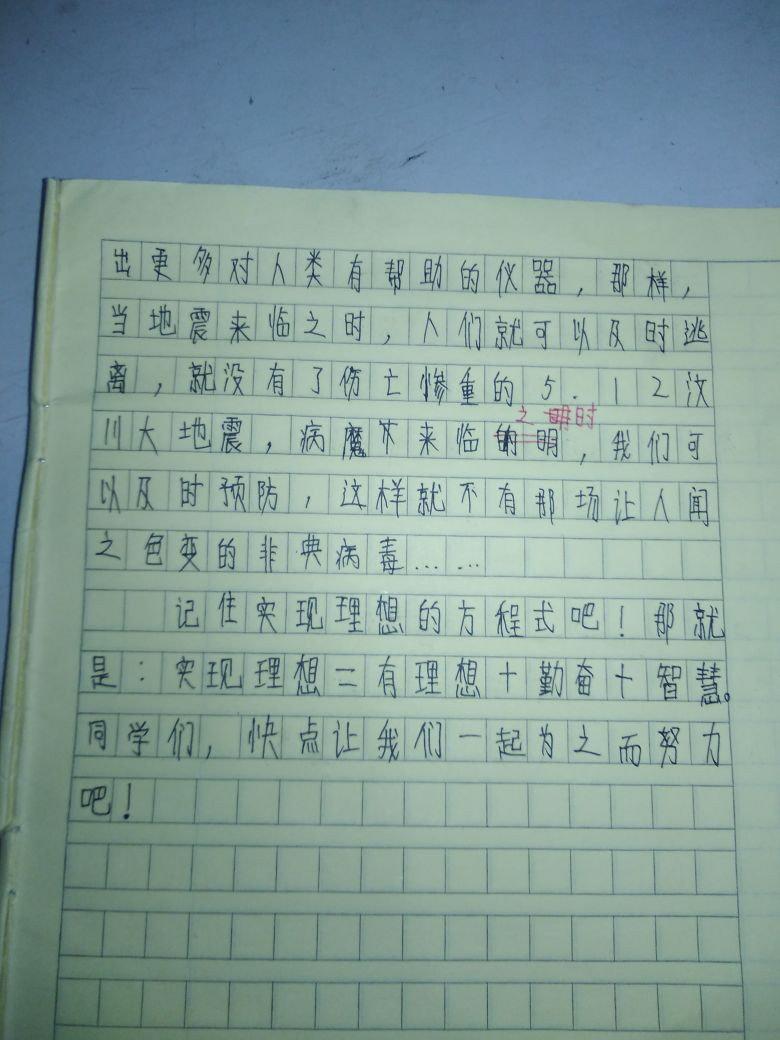 出更多对人类有帮助的仪器，那样，
当地震来临之时，人们就可以及时逃
离，就没有了伤亡惨重的5.12汶
之时
川大地震，病魔不来临的明，我们可
以及时预防，这样就不有那场让人闻
之色变的非典病毒……
记住实现理想的方程式吧！那就
是：实现理想=有理想+勤奋+智慧。
同学们，快点让我们一起为之而努力
吧！